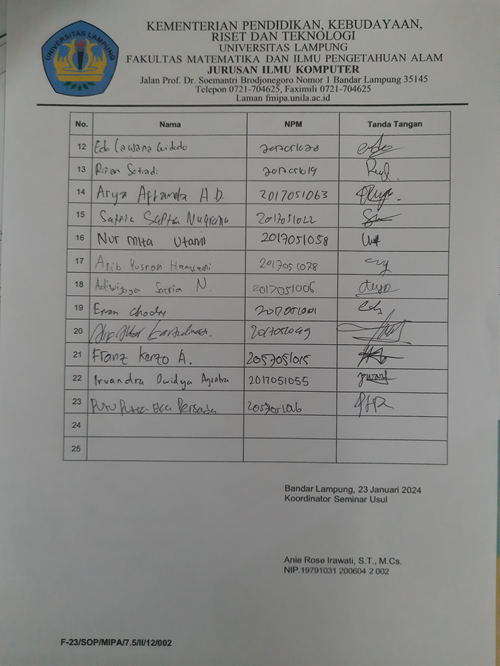 UNIVERSITAS LAMPUNG
KEMENTERIAN PENDIDIKAN, KEBUDAYAAN,
RISET DAN TEKNOLOGI
UNIVERSITAS LAMPUNG
FAKULTAS MATEMATIKA DAN ILMU PENGETAHUAN ALAM
JURUSAN ILMU KOMPUTER
Jalan Prof. Dr. Soemantri Brodjonegoro Nomor 1 Bandar Lampung 35145
Telepon 0721-704625, Faximili 0721-704625
Laman fmipa.unila.ac.id
No. Nama NPM Tanda Tangan
12 Edo
13
14 Arya Affanda H.D. 2017051063
15 Satria Septa Nugraha 2017051022
16 Nur Mita Utami 2017051058
17 Arib Yusron 2017051078
18 Adiwijaya Satria N 2017051006
19 2017051001
20 2017051049
21 Franz Kenzo A. 2057051015
22 Irvandra Dwidya 2017051055
23 Putu Putra Eka Persada
24
25
Bandar Lampung, 23 Januari 2024
Koordinator Seminar Usul
Anie Rose Irawati, S.T., M.Cs.
NIP.19791031 200604 2 002
F-23/SOP/MIPA/7.5/II/12/002